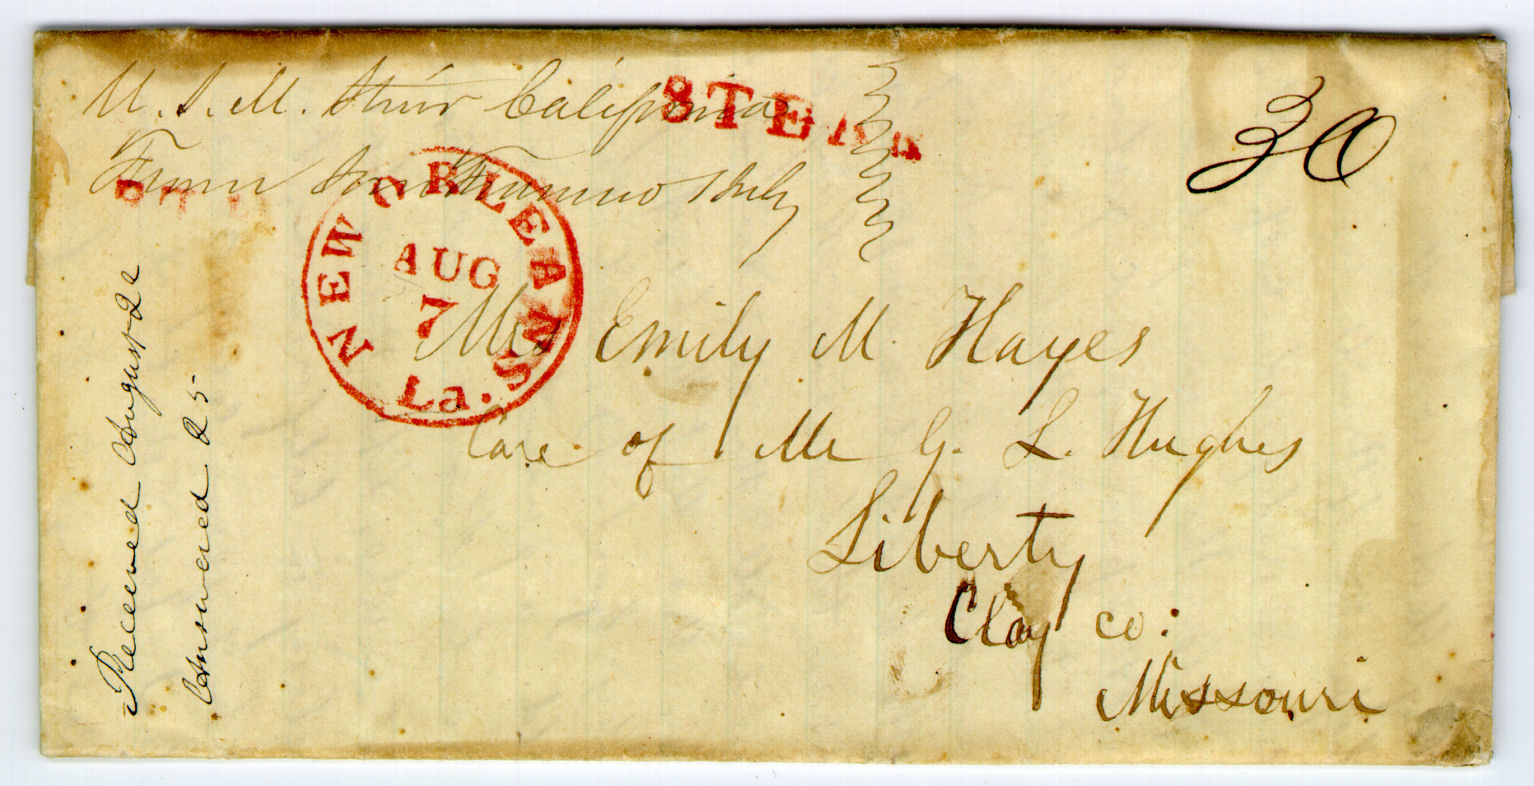 U. S. M. Stmr California
STEAM
30
From San Francisco 1 July
ST
NEW ORLEANS
La.
AUG
7
Mrs Emily M. Hayes
Care of Mr G. L. Hughes
Liberty
Clay co:
Missouri
Received August 22
Answered 25